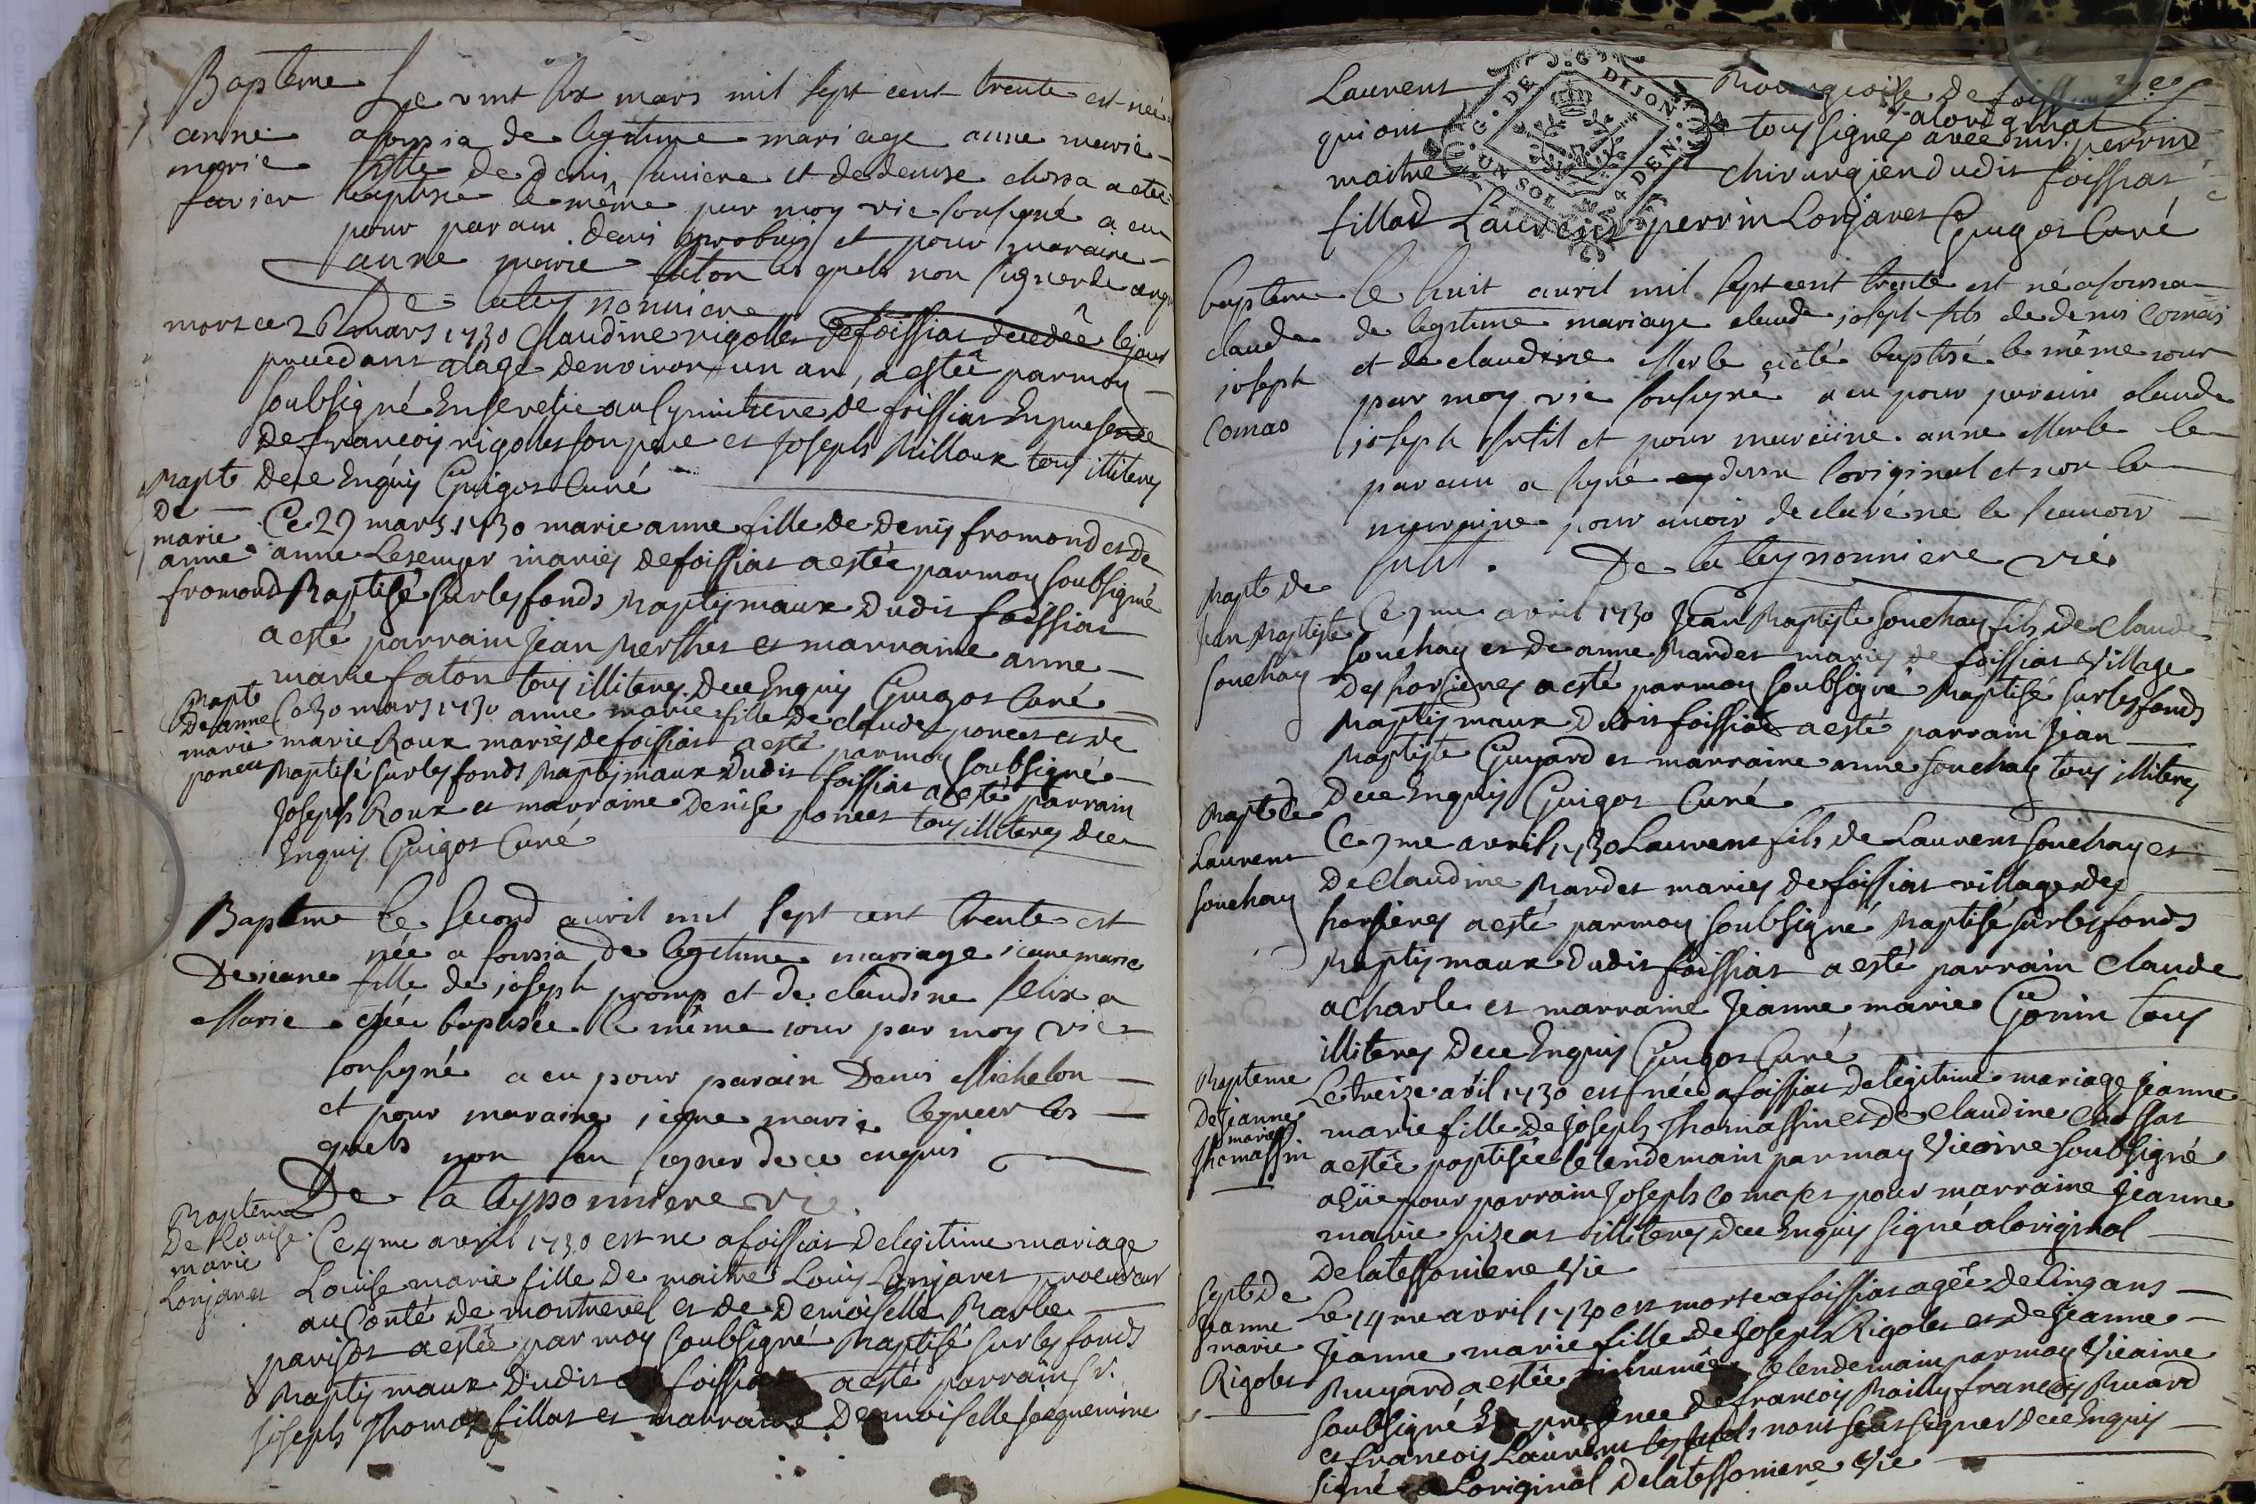 Bapteme Le vint six mars mil sept cent trente est née
anne a foissia de legitime mariage anne marie
marie fille de denis favier et de denise chossa a etée
favier baptisée le même par moy vic sousigné a eu
pour parain denis et pour maraine
anne marie faton les quels non signer de
De lateysonniere
mort ce 26 mars 1730 Claudine rigollet de foissiat decedée le jour
precedant a lage denviron un an, a estée par moy
soubsigné Ensevelie au Cymitiere de foissiat En presence
de francois rigolet son pere et Joseph Milloux tous illiterez
Bapt Dece Enquis Guigot Curé
De Ce 29 mars 1730 marie anne fille de Denis fromond et de
marie anne anne mariez de foissiat a estée par moy soubsigné
fromond Baptisé sur les fonds Baptismaux dudit foissiat
a esté parrain Jean et marraine anne
marie faton tous illiterez Dece Enquis Guigot Curé
Bapt Ce 30 mars 1730 anne marie fille de claude poncet et de
De anne marie marie Roux mariez de foissiat a esté par moy soubsigné
poncet Baptisé sur les fonds Baptismaux dudit foissiat a esté parrain
Joseph Roux et marraine Denise poncet tous illiterez Dece
Enquis Guigot Curé
Bapteme le second avril mil sept cent trente est
née a foissia de legitime mariage jeanne marie
De jeane fille de joseph promp et de claudine felix a
Marie etée baptisée le même jour par moy vic
sousigné a eu pour parain Denis Michelon
et pour maraine jeane marie les
quels non seu signer de ce enquis
De lateysonniere vic
Bapteme Ce 4me avril 1730 est ne a foissiat de legitime mariage
De Louise marie Louise marie fille de maitre Louis Lonjaret procureur
Lonjaret au Conté de montrevel et de Demoiselle Barbe
parisot a estée par moy soubsigné Baptisé sur les fonds
Baptismaux dudit foissiat a esté parrain Sr
Joseph Thomas fillot et marraine Demoiselle Jacquemine
Laurent Bourgeoise de foissiat
G. DE DIJON
G. UN SOL 4 DEN.
qui ont tous signés a loriginal avec mr perrin
maitre chirurgien dudit foissiat
fillod Laurent perrin Lonjaret Guigot Curé
bapteme le huit avril mil sept cent trente est né a foissia
claude de legitime mariage claude joseph fils de denis Comas
joseph et de claudine Merle a eté baptisé le même jour
Comas par moy vic sousigné a eu pour parain claude
joseph et pour maraine anne Merle le
parain a signé dessu loriginal et non la
maraine pour avoir declaré ne le scavoir
De lateysonniere vic
Bapt de Ce 9me avril 1730 Jean Baptiste souchay fils de Claude
Jean Baptiste souchay et de anne Bardet mariez de foissiat village
souchay des a esté par moy soubsigné Baptisé sur les fonds
Baptismaux dudit foissiat a esté parrain Jean
Baptiste Guyard et marraine anne souchay tous illiterez
Dece Enquis Guigot Curé
Bapt de Ce 9me avril 1730 Laurent fils de Laurent souchay et
Laurent De Claudine Bardet mariez de foissiat village des
souchay a esté par moy soubsigné Baptisé sur les fonds
Baptismaux dudit foissiat a esté parrain Claude
acharle et marraine Jeanne marie Gonin tous
illiterez Dece Enquis Guigot Curé
Bapteme Le treize avril 1730 est née a foissiat de legitime mariage Jeanne
De Jeanne marie marie fille de Joseph Thomassin et de Claudine Chossat
Thomassin a estée baptisée le lendemain par moy Vicaire soubsigné
a eüe pour parrain Joseph Comas et pour marraine Jeanne
marie pizeat illiterez Dece Enquis signé a loriginal
De latessoniere Vic
Sept de Le 14me avril 1730 est morte a foissiat agée de Cinq ans
Jeanne marie Jeanne marie fille de Joseph Rigolet et de Jeanne
Rigolet Buyard a estée inhumée le lendemain par moy Vicaire
soubsigné En presence de francois Bailly francois Buard
et francois Laurent les quels nont seut signer Dece Enquis
signé a Loriginal De latessoniere Vic